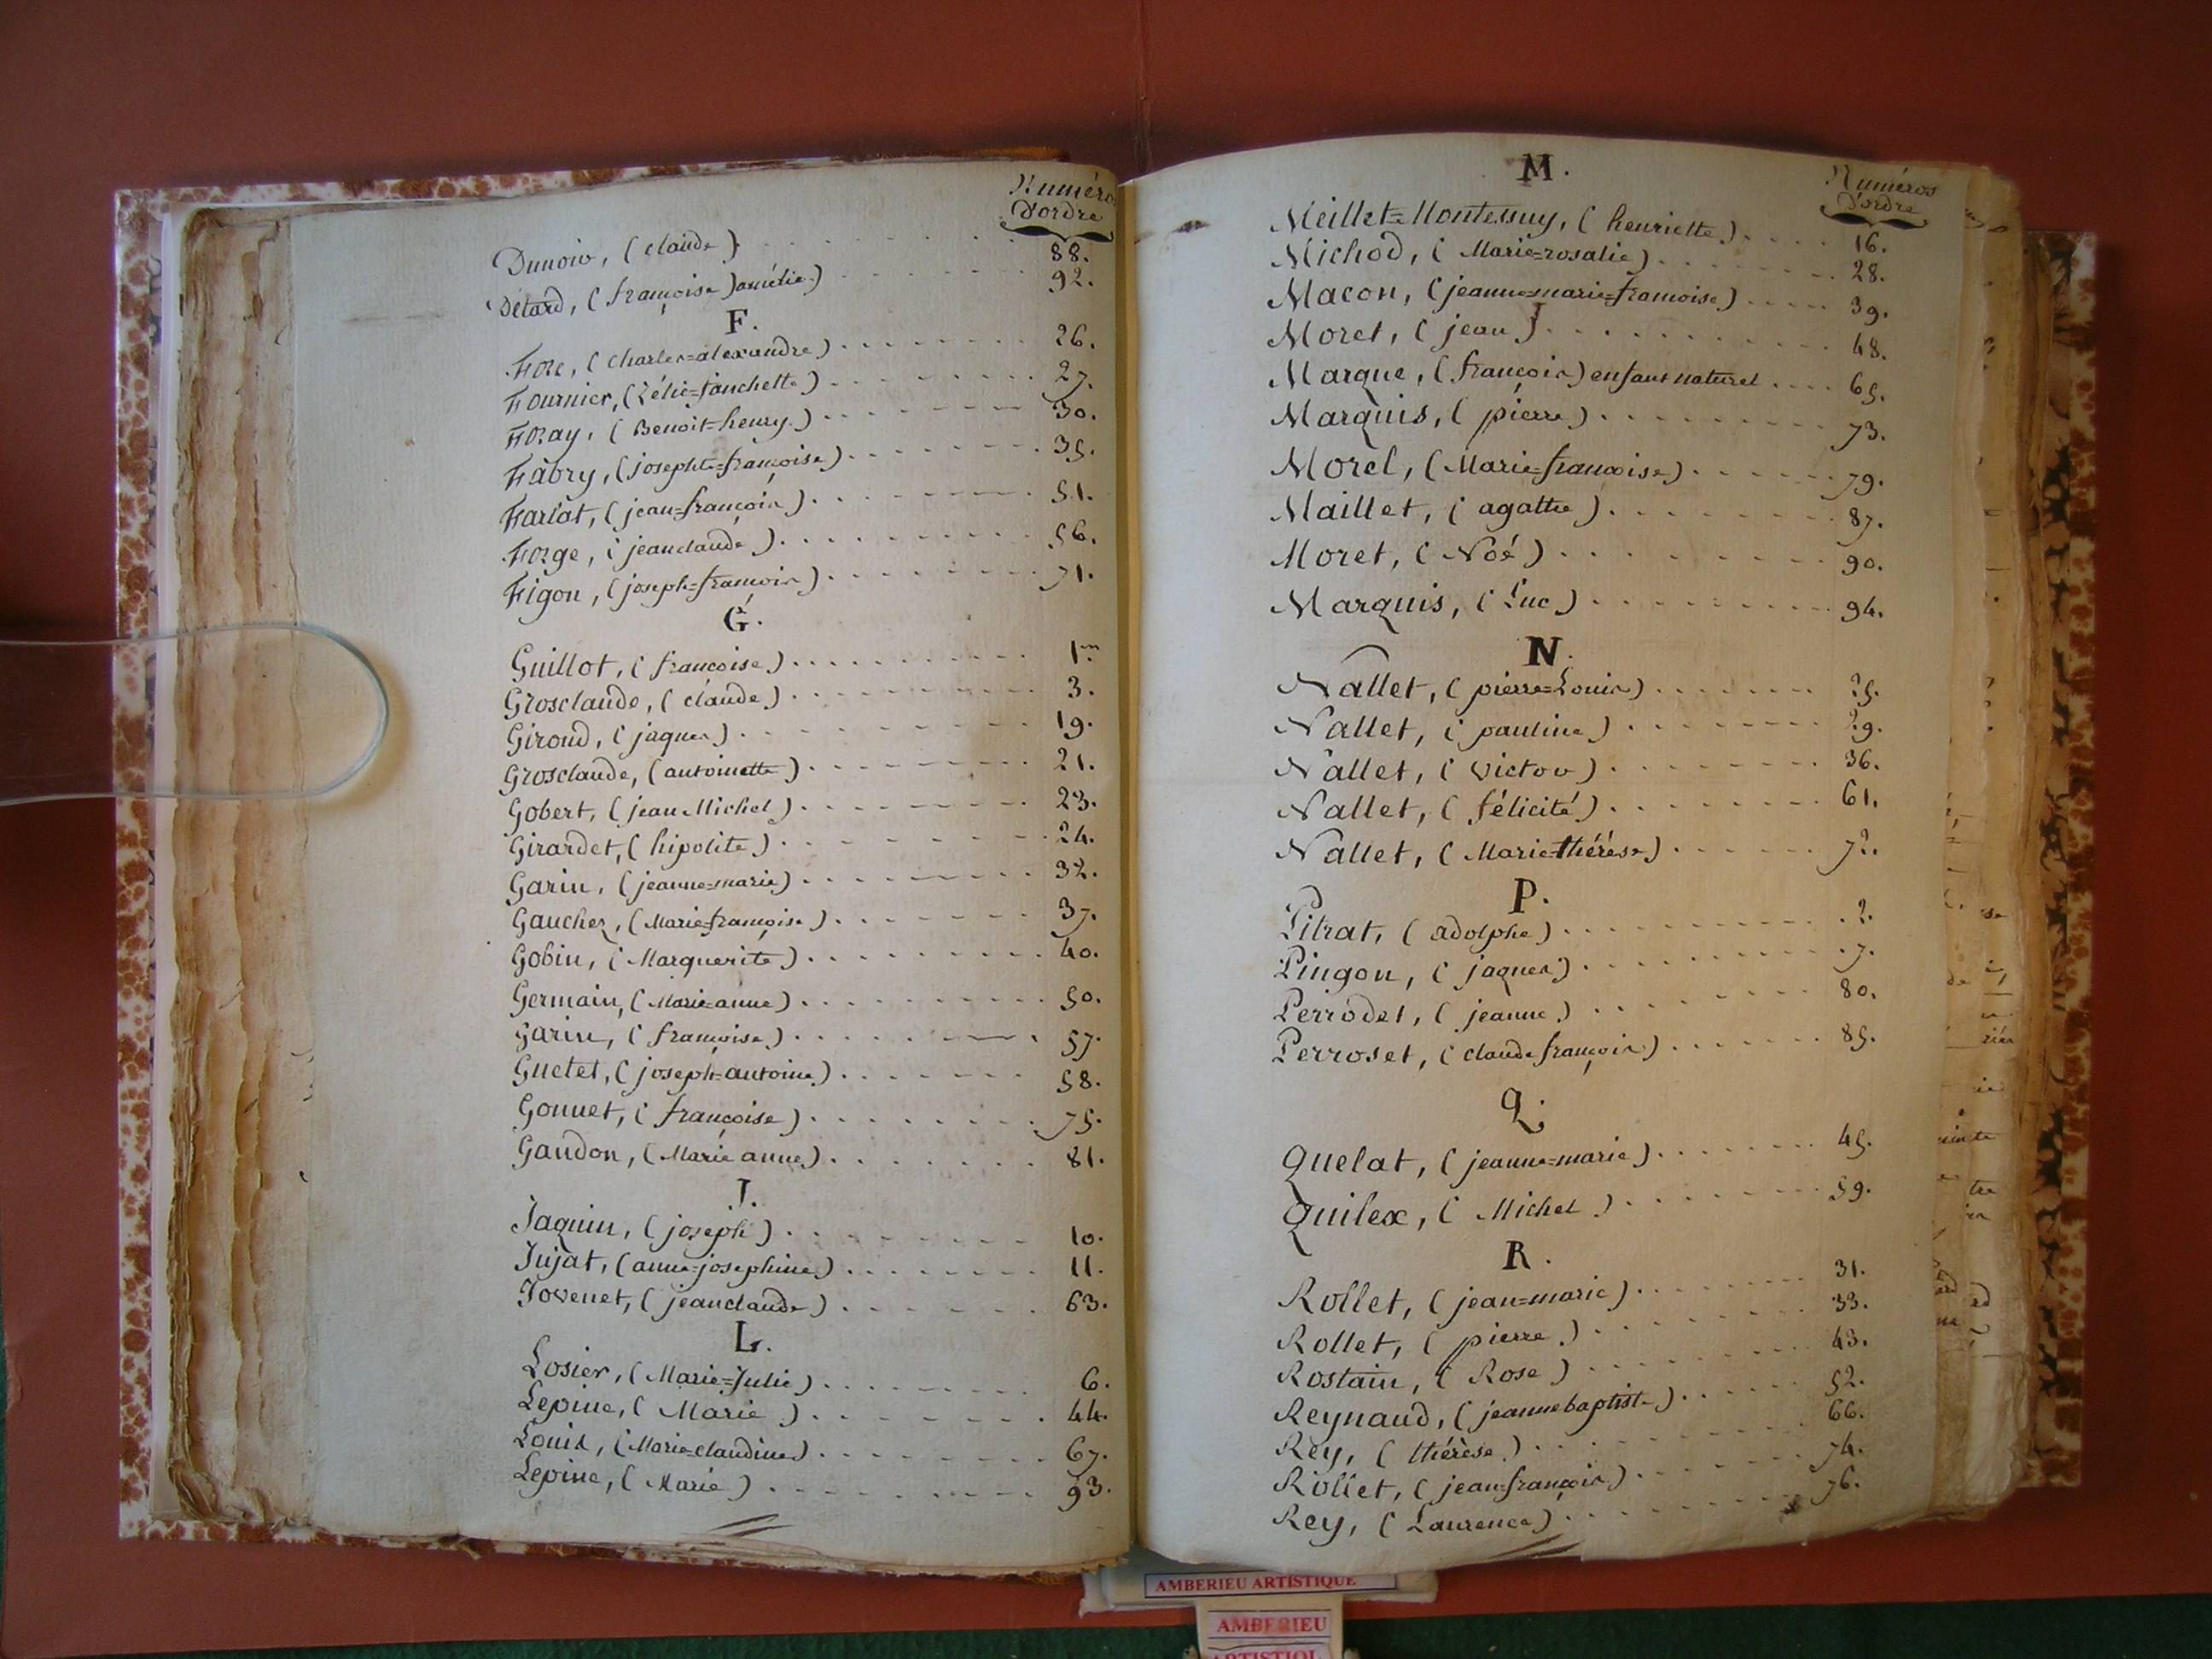 Numéros
D'ordre
Dunoir, (claude) 88.
Détard, (françoise) amélie) 92.
F.
Fore, (Charles=alexandre) 26.
Fournier, (Zélie=fanchette) 27.
Foray, (Benoit=henry) 30.
Fabry, (josephte=françoise) 35.
Farlat, (jean=françois) 51.
Forge, (jean claude) 56.
Figon, (joseph=françois) 71.
G.
Guillot, (françoise) 1er
Grosclaude, (claude) 3.
Giroud, (jaques) 19.
Grosclaude, (antoinette) 21.
Gobert, (jean Michel) 23.
Girardet, (hipolite) 24.
Garin, (jeanne=marie) 32.
Gaucher, (Marie=françoise) 37.
Gobin, (Marguerite) 40.
Germain, (Marie=anne) 50.
Garin, (françoise) 57.
Guetet, (joseph=antoine) 58.
Gonnet, (françoise) 75.
Gaudon, (Marie anne) 81.
J.
Jaquin, (joseph) 10.
Jujat, (anne=josephine) 11.
Jovenet, (jean claude) 63.
L.
Losier, (Marie=Julie) 6.
Lepine, (Marie) 44.
Louis, (Marie=claudine) 67.
Lepine, (Marie) 93.
M.
Numéros
D'ordre
Meillet=Montessuy, (henriette) 16.
Michod, (Marie=rosalie) 28.
Macon, (jeanne=marie=françoise) 39.
Moret, (jean) 48.
Marque, (françois) enfant naturel 65.
Marquis, (pierre) 73.
Morel, (Marie=françoise) 79.
Maillet, (agathe) 87.
Moret, (Noé) 90.
Marquis, (Luc) 94.
N.
Nallet, (pierre=Louis) 25.
Nallet, (pauline) 29.
Nallet, (victor) 36.
Nallet, (félicité) 61.
Nallet, (Marie=thérèse) 72.
P.
Pitrat, (adolphe) 2.
Pingon, (jaques) 7.
Perrodet, (jeanne) 80.
Perroset, (claude françois) 85.
Q.
Quelat, (jeanne=marie) 45.
Quilex, (Michel) 59.
R.
Rollet, (jean=marie) 31.
Rollet, (pierre) 33.
Rostain, (Rose) 43.
Reynaud, (jeanne baptiste) 52.
Rey, (thérèse) 66.
Rollet, (jean=françois) 74.
Rey, (Laurence) 76.
AMBERIEU ARTISTIQUE
AMBERIEU